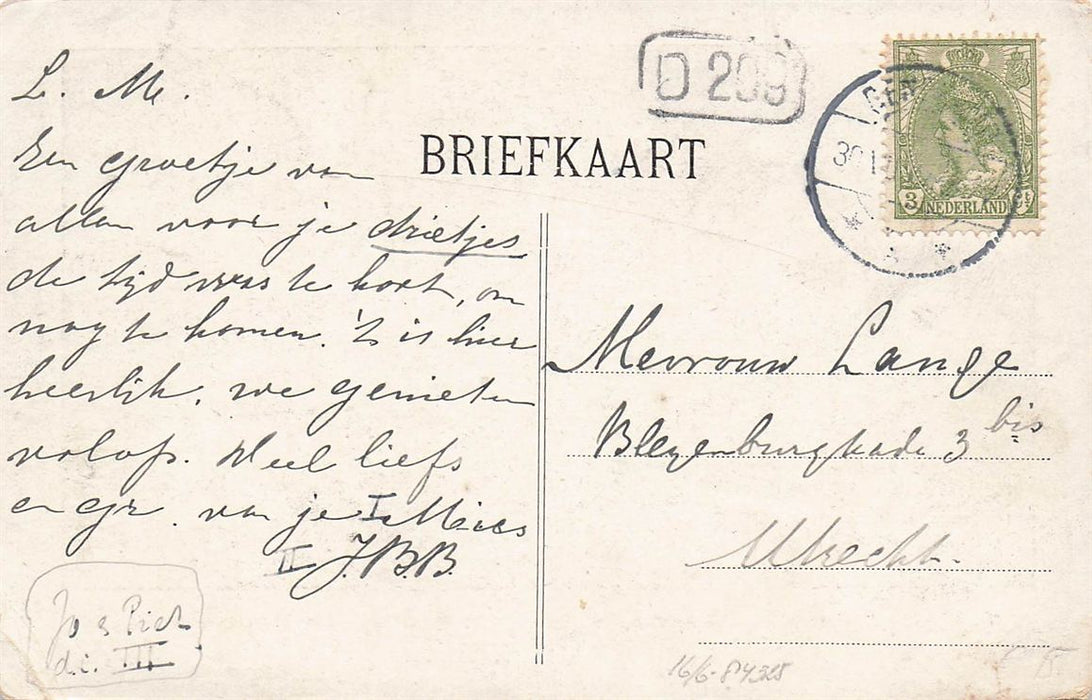 L. M.
Een groetje van
allen voor je drietjes
de tijd was te kort, om
nog te komen. 't is hier
heerlijk. we genieten
volop. Veel liefs
en gr. van je I Mies
II J.B.B.
Jo & Piet
d.i. III
BRIEFKAART
D 299
30 12
3 NEDERLAND
Mevrouw Lange
Bleyenburgkade 3 bis
Utrecht.
16/6-84325